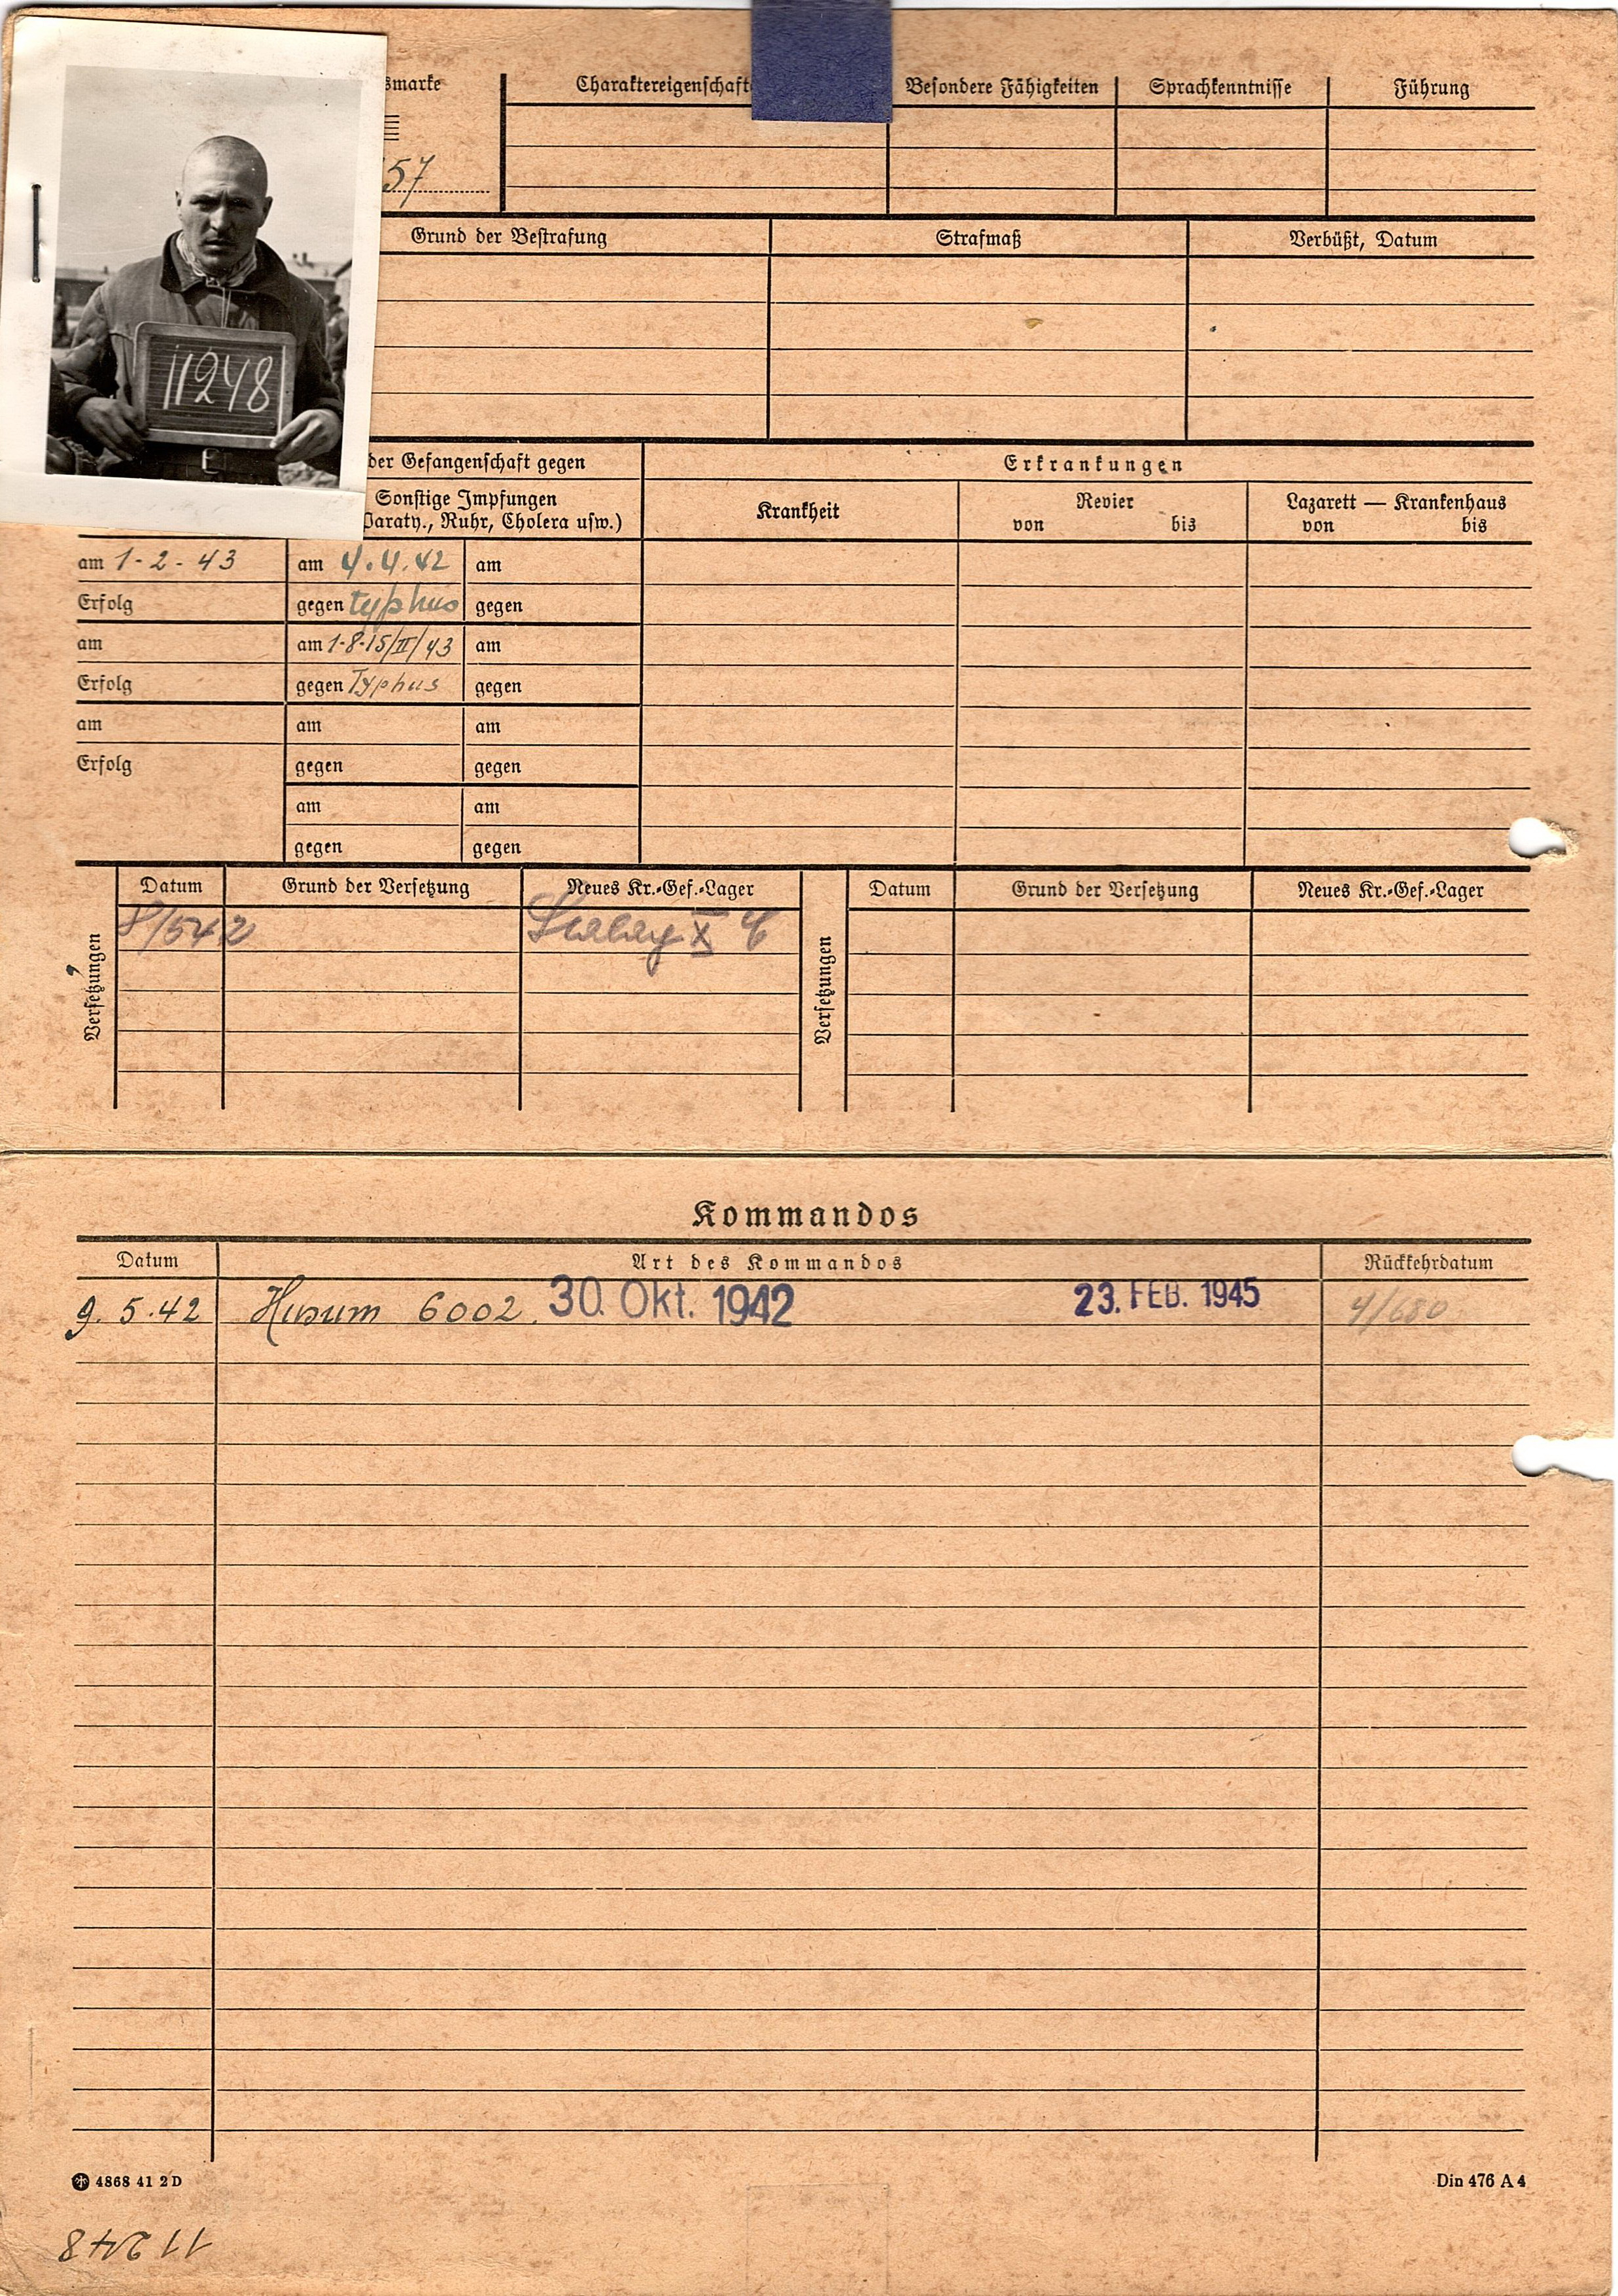 smarke Charaktereigenschaft Besondere Fähigkeiten Sprachkenntnisse Führung
57
Grund der Bestrafung Strafmaß Verbüßt, Datum
11248
der Gefangenschaft gegen Erkrankungen
Sonstige Impfungen Krankheit Revier Lazarett — Krankenhaus
Paraty., Ruhr, Cholera usw.) von bis von bis
am 1-2-43 am 4.4.42 am
Erfolg gegen typhus gegen
am am 1-8-15/II/43 am
Erfolg gegen Typhus gegen
am am am
Erfolg gegen gegen
am am
gegen gegen
Versetzungen Datum Grund der Versetzung Neues Kr.-Gef.-Lager Versetzungen Datum Grund der Versetzung Neues Kr.-Gef.-Lager
8/542 Stalag X
Kommandos
Datum Art des Kommandos Rückkehrdatum
9.5.42 Husum 6002. 30. Okt. 1942 23. FEB. 1945 4/680
4868 41 2 D Din 476 A 4
11248